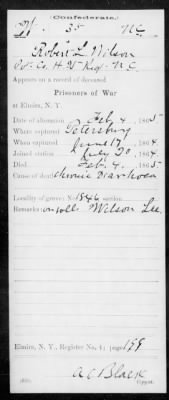 (Confederate.)
W. 35 N C
Robert L. Wilson
Pvt. Co. H 35 Reg. N C
Appears on a record of deceased
Prisoners of War
at Elmira, N. Y.
Date of alteration Feb 4, 1865
Where captured Petersburg
When captured June 17, 1864
Joined station July 20, 1864
Died Feb. 4, 1865
Cause of death chronic Diarrhoea
Locality of grave: No. 1846 section
Remarks: on rolls Wilson Lee.
Elmira, N. Y., Register No. 4; page 199
A C Black
Copyist.